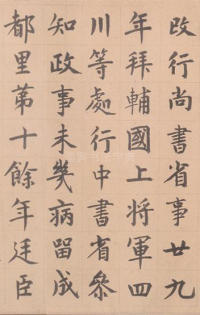 改行尚書省事廿九
年拜輔國上將軍四
川等處行中書省叅
知政事未幾病留成
都里第十餘年廷臣